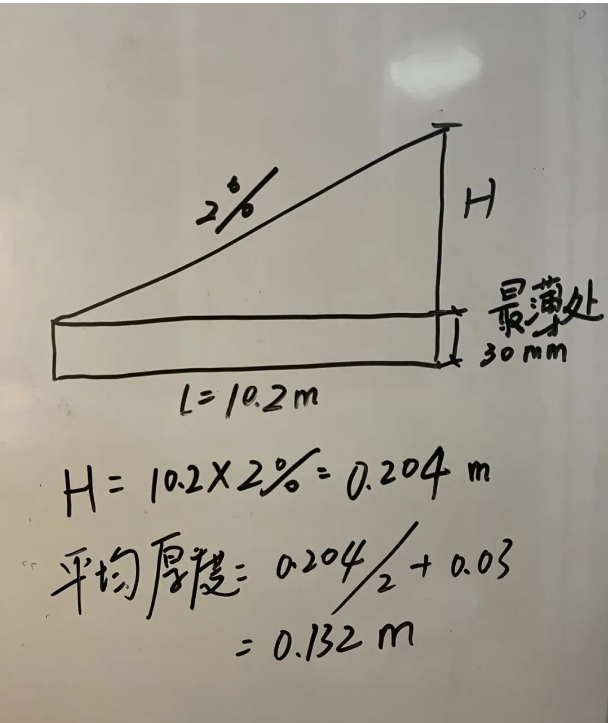 2%
H
最薄处
30mm
L=10.2m
H=10.2×2%=0.204 m
平均厚度=0.204/2+0.03
=0.132 m